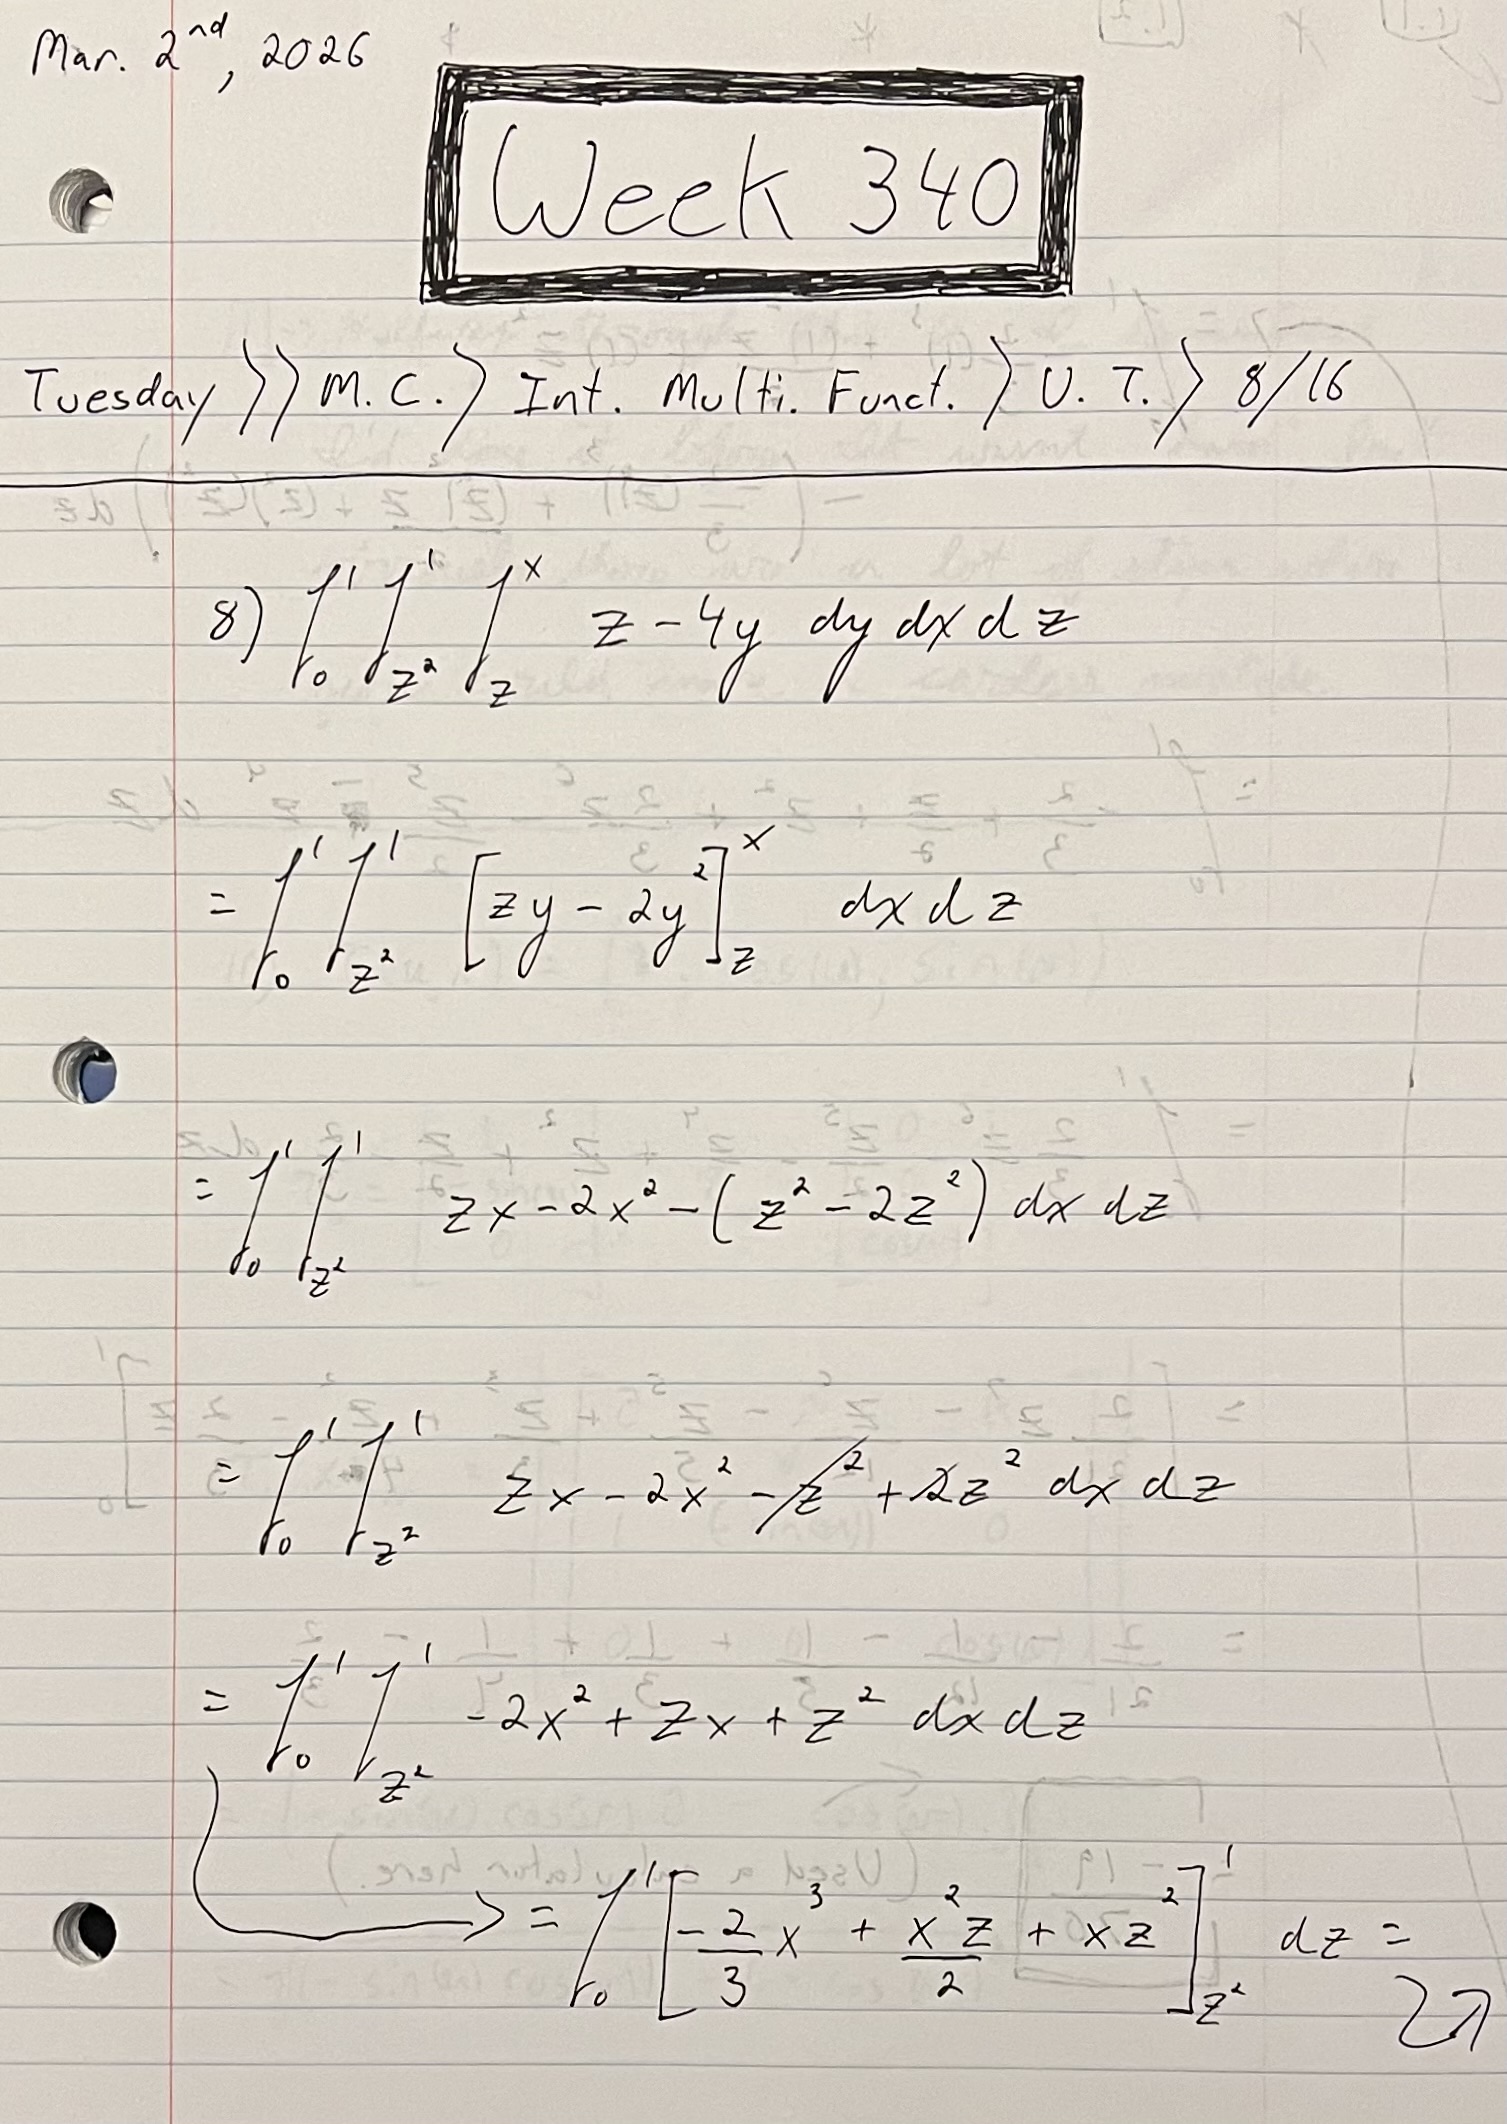 Mar. 2nd, 2026
Week 340
Tuesday >> M.C. > Int. Multi. Funct. > U.T. > 8/16
8) ∫₀¹ ∫_{z²}^1 ∫_z^x z - 4y dy dx dz
= ∫₀¹ ∫_{z²}^1 [zy - 2y²]_z^x dx dz
= ∫₀¹ ∫_{z²}^1 zx - 2x² - (z² - 2z²) dx dz
= ∫₀¹ ∫_{z²}^1 zx - 2x² - z² + 2z² dx dz
= ∫₀¹ ∫_{z²}^1 -2x² + zx + z² dx dz
→ = ∫₀¹ [-2/3 x³ + x²z/2 + xz²]_{z²}^1 dz =